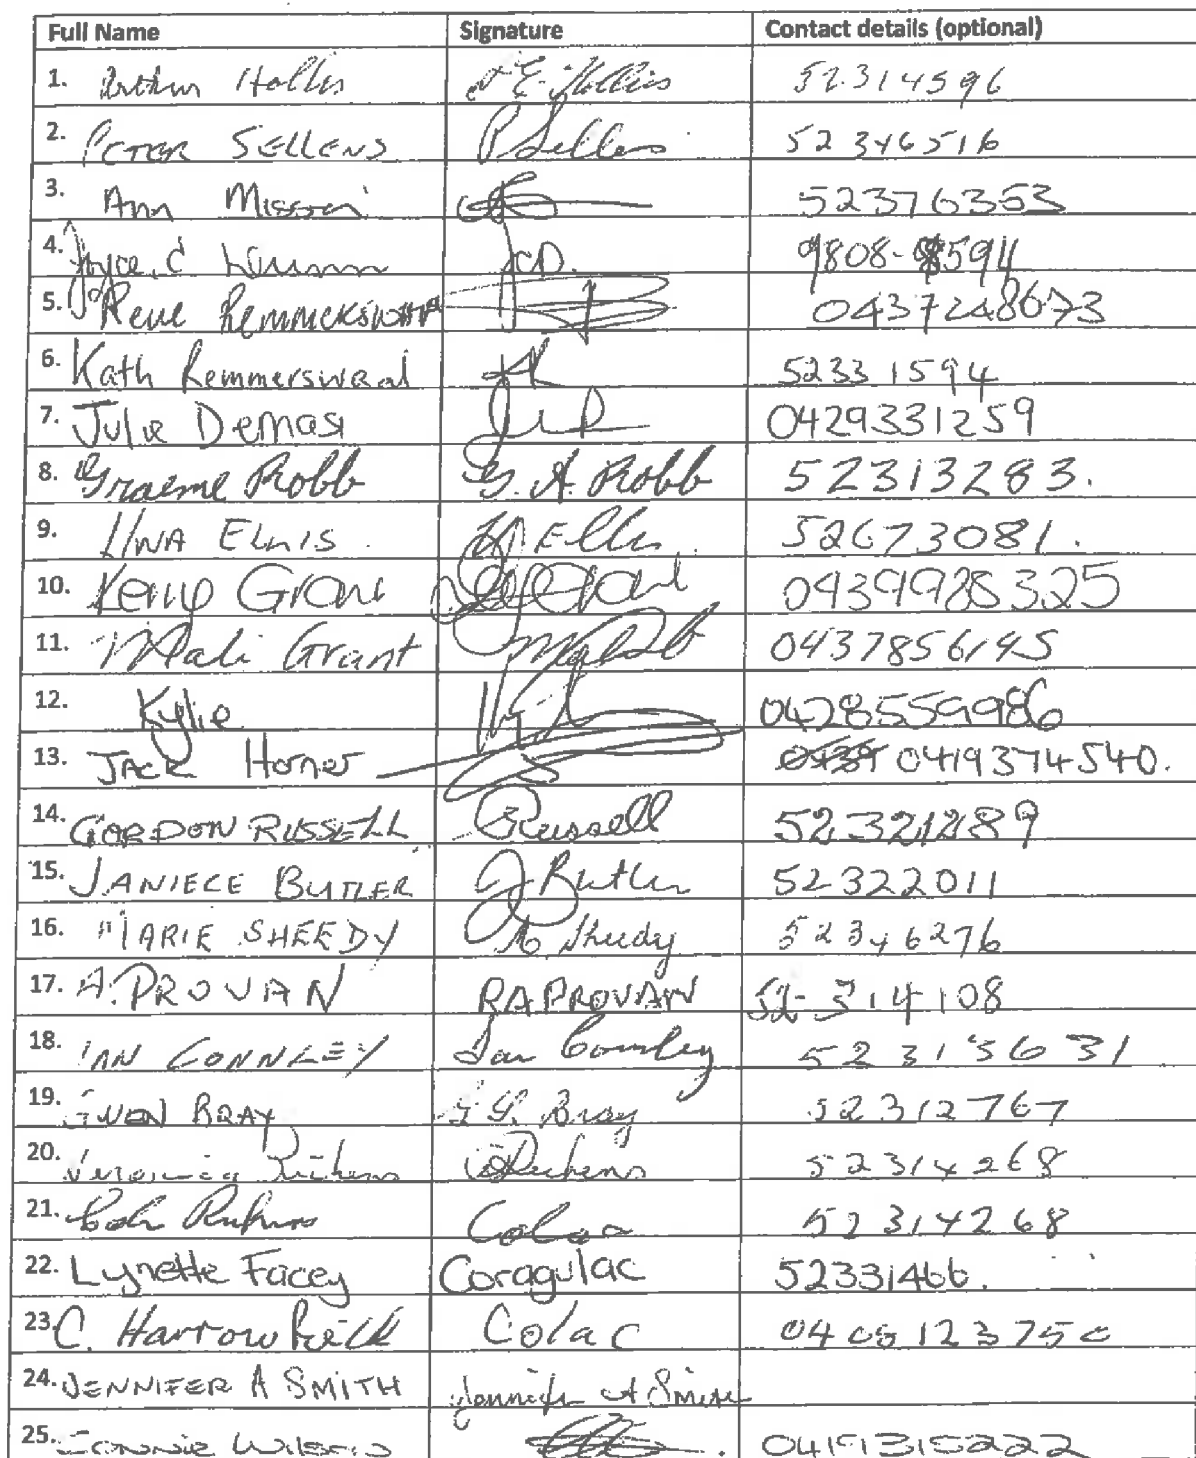 Full Name Signature Contact details (optional)
1. Arthur Hollis A E Hollis 52314596
2. PETER SELLENS P Sellens 52346516
3. Ann 523763 53
4. Joyce. C JCD. 9808-8594
5. Rene Remmerswaal 0437248673
6. Kath Remmerswaal 52331594
7. Julie Demasi 0429331259
8. Graeme Robb G. A. Robb 52313283.
9. UNA ELLIS U Ellis 52673081.
10. Kerryp Grant Grant 0439928325
11. Mali Grant 0437856145
12. Kylie 0428559986
13. JACK Horner 0439 0419374540.
14. GORDON RUSSELL Russell 52321289
15. JANIECE BUTLER J Butler 52322011
16. MARIE SHEEDY M. Sheedy 52346276
17. A. PROVAN RAPROVAN 52-314108
18. IAN CONNLEY Ian Connley 523 15631
19. GWEN BRAY G G. Bray 52312767
20. Veronica 52314268
21. Colac 52314268
22. Lynette Facey Coragulac 52331466.
23. C. Harrowfield Colac 0405123750
24. JENNIFER A SMITH Jennifer A Smith
25. Connie Wilson 0419315222